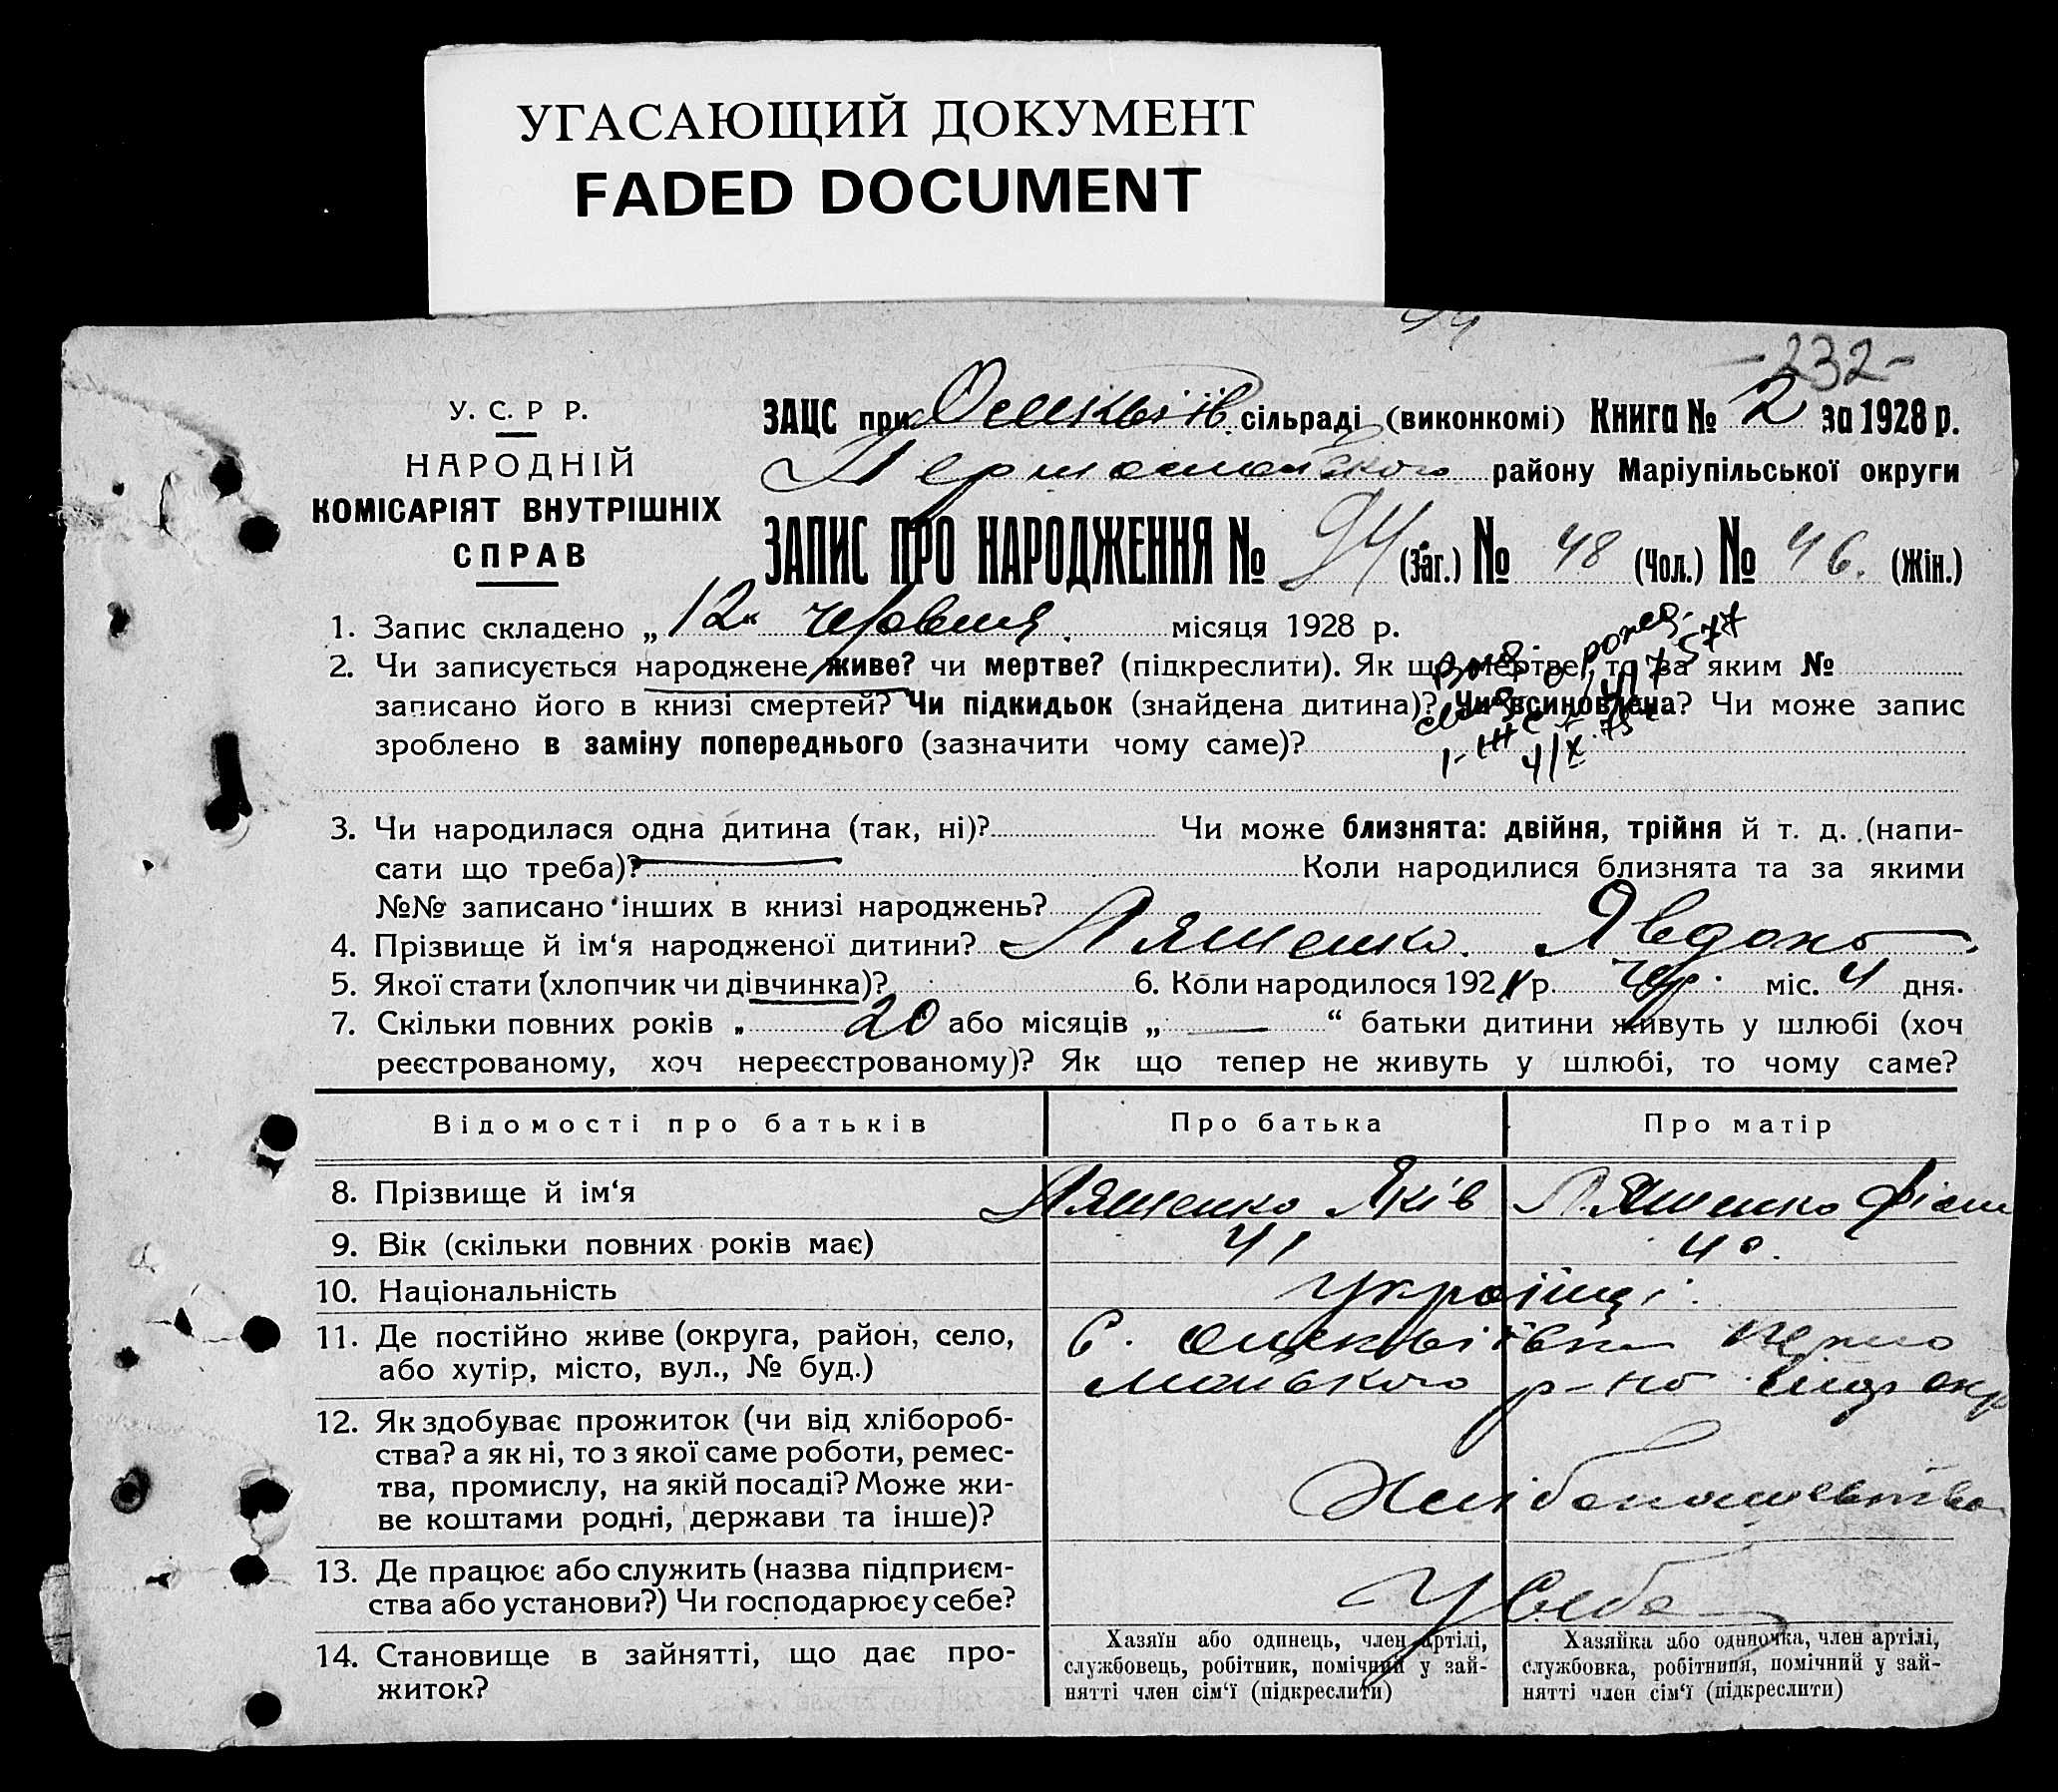 УГАСАЮЩИЙ ДОКУМЕНТ
FADED DOCUMENT
-232-
У. С. Р Р.
НАРОДНІЙ
КОМІСАРІЯТ ВНУТРІШНІХ
СПРАВ
ЗАЦС при сільраді (виконкомі) Книга № 2 за 1928 р.
району Маріупільської округи
ЗАПИС ПРО НАРОДЖЕННЯ № 94 (Заг.) № 48 (Чол.) № 46. (Жін.)
1. Запис складено „12“ червня місяця 1928 р.
2. Чи записується народжене живе? чи мертве? (підкреслити). Як що мертве, то за яким №
записано його в книзі смертей? Чи підкидьок (знайдена дитина)? Чи всиновлена? Чи може запис
зроблено в заміну попереднього (зазначити чому саме)?
3. Чи народилася одна дитина (так, ні)? Чи може близнята: двійня, трійня й т. д. (напи-
сати що треба)? Коли народилися близнята та за якими
№№ записано інших в книзі народжень?
4. Прізвище й ім‘я народженої дитини? Ляшенко Явдоха
5. Якої стати (хлопчик чи дівчинка)? 6. Коли народилося 192 р. чер. міс. 4 дня.
7. Скільки повних років „ 20 або місяців „ — “ батьки дитини живуть у шлюбі (хоч
реєстрованому, хоч нереєстрованому)? Як що тепер не живуть у шлюбі, то чому саме?
Відомості про батьків Про батька Про матір
8. Прізвище й ім‘я Ляшенко Яків Ляшенко
9. Вік (скільки повних років має) 41 40.
10. Національність Українці
11. Де постійно живе (округа, район, село, с. Перво
або хутір, місто, вул., № буд.) майського р-но окр
12. Як здобуває прожиток (чи від хлібороб-
ства? а як ні, то з якої саме роботи, ремес-
тва, промислу, на якій посаді? Може жи-
ве коштами родні, держави та інше)? Хлібопашевство
13. Де працює або служить (назва підприєм-
ства або установи?) Чи господарює у себе? У себе
14. Становище в зайнятті, що дає про-
житок?
Хазяїн або одинець, член артілі,
службовець, робітник, помічний у зай-
нятті член сім‘ї (підкреслити)
Хазяйка або одиночка, член артілі,
службовка, робітниця, помічний у зай-
нятті член сім‘ї (підкреслити)